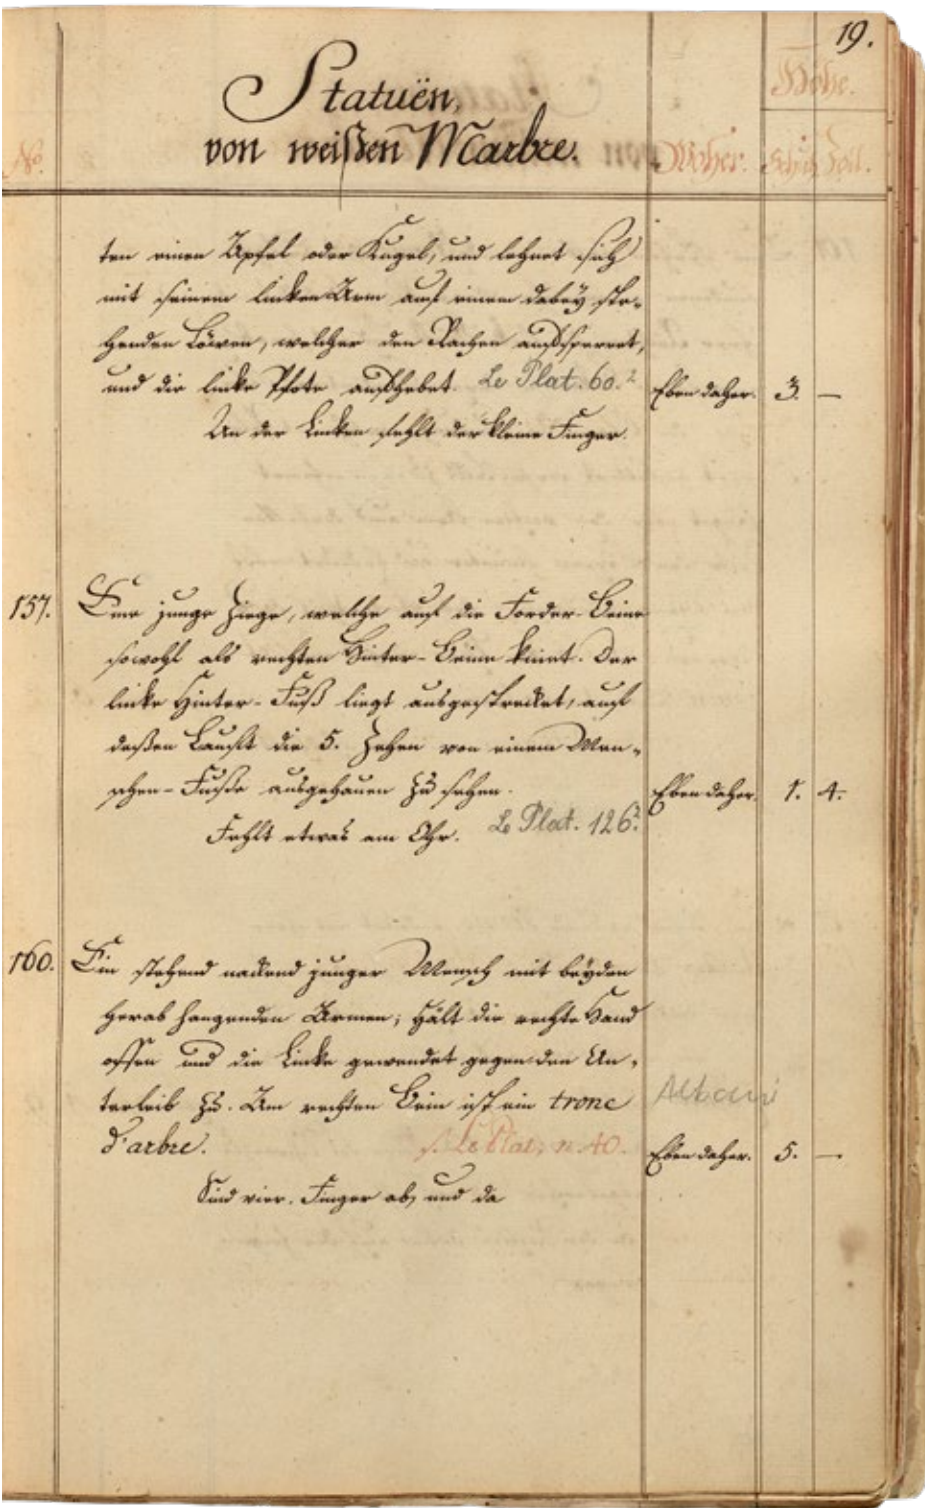 19.
Statuën,
von weißen Marbre.
No.
Woher.
Höhe.
Schuh
Zoll.
ten einen Apfel oder Kugel, und lehnet sich
mit seinem linken Arm auf einem dabey ste-
henden Löwen, welcher den Rachen aufsperret,
und die linke Pfote aufhebet. Le Plat. 60.2
Eben daher. 3. —
An der Linken fehlt der kleine Finger.
157. Eine junge Ziege, welche auf die Forder-Beine
sowohl als rechten Hinter-Beine kniet. Der
linke Hinter-Fuß liegt ausgestrecket, auf
deßen Läufft die 5. Zehen von einem Men-
schen-Fuße ausgehauen zu sehen.
Eben daher. 1. 4.
Fehlt etwas am Ohr. Le Plat. 126.2
160. Ein stehend nackend junger Mensch mit beyden
herab hangenden Armen; hält die rechte Hand
offen und die Linke gewendet gegen den Un-
terleib zu. Am rechten Bein ist ein tronc
Albani
d'arbre. s. Le Plat, n. 40.
Eben daher. 5. —
Sind vier. Finger ab, und da